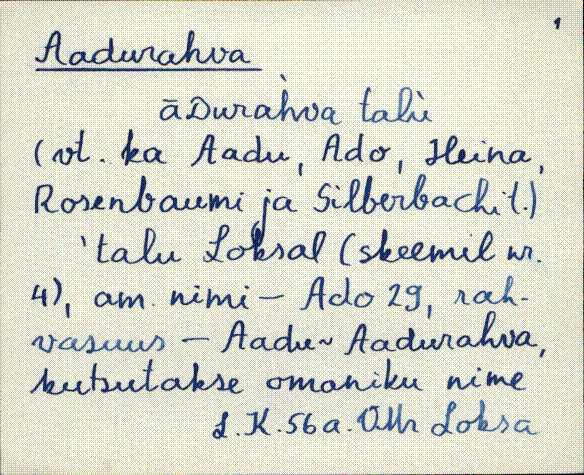 1
Aadurahva
āDurahva talù
(vt. ka Aadu, Ado, Heina,
Rosenbaumi ja Silberbachi t.)
'talu Loksal (skeemil nr.
4), am. nimi – Ado 29, rah-
vasuus – Aadu ~ Aadurahva,
kutsutakse omaniku nime
L.K. 56 a. Loksa